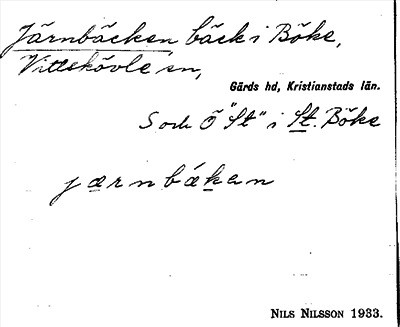 Järnbäcken bäck i Böke,
Vittskövle sn,
Gärds hd, Kristianstads län.
S och Ö "St" i St. Böke
jærnbækan
NILS NILSSON 1933.